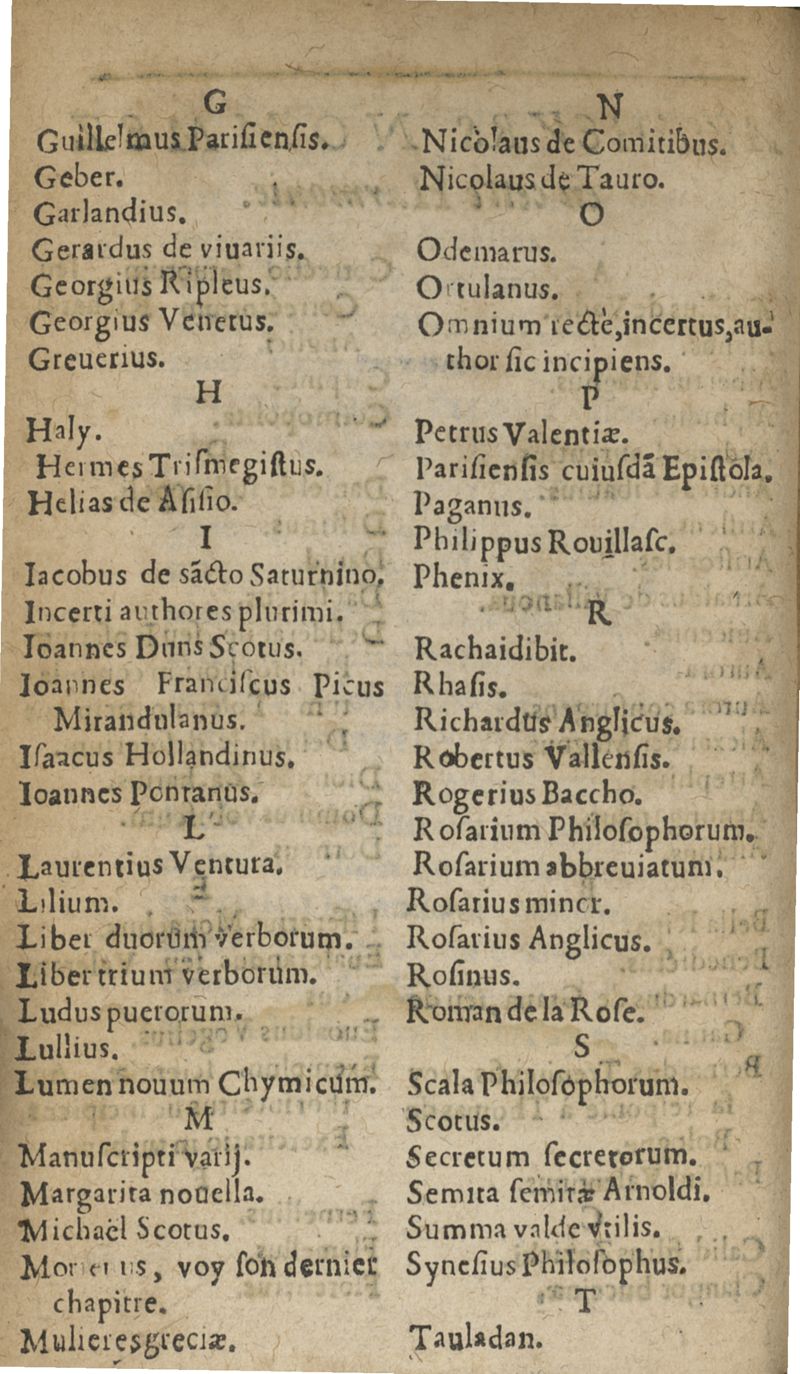 G
Guillelmus Parisiensis.
Geber.
Garlandius.
Gerardus de viuariis.
Georgius Ripleus.
Georgius Venetus.
Greuerius.
H
Haly.
Hermes Trismegistus.
Helias de Asisio.
I
Iacobus de sãcto Saturnino.
Incerti authores plurimi.
Ioannes Duns Scotus.
Ioannes Franciscus Picus
Mirandulanus.
Isaacus Hollandinus.
Ioannes Pontanus.
L
Laurentius Ventura.
Lilium.
Liber duorum verborum.
Liber trium verborum.
Ludus puerorum.
Lullius.
Lumen nouum Chymicum.
M
Manuscripti varij.
Margarita nouella.
Michaël Scotus.
Morienus, voy son dernier
chapitre.
Mulieres greciæ.
N
Nicolaus de Comitibus.
Nicolaus de Tauro.
O
Odemarus.
Ortulanus.
Omnium rectè, incertus, au-
thor sic incipiens.
P
Petrus Valentiæ.
Parisiensis cuiusdã Epistola.
Paganus.
Philippus Rouillasc.
Phenix.
R
Rachaidibit.
Rhasis.
Richardus Anglicus.
Robertus Vallensis.
Rogerius Baccho.
Rosarium Philosophorum.
Rosarium abbreuiatum.
Rosarius minor.
Rosarius Anglicus.
Rosinus.
Roman de la Rose.
S
Scala Philosophorum.
Scotus.
Secretum secretorum.
Semita semitæ Arnoldi.
Summa valde vtilis.
Synesius Philosophus.
T
Tauladan.